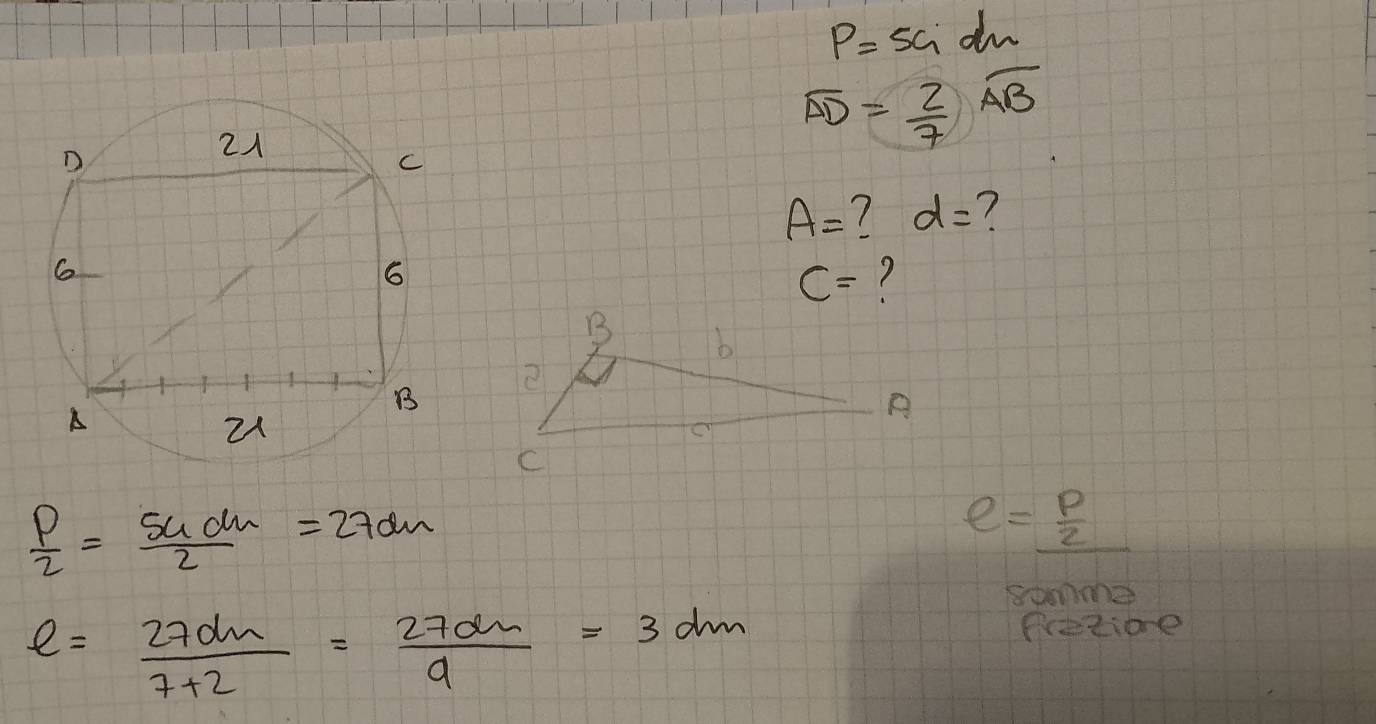 P = 54 dm
AD = 2/7 AB
A = ? d = ?
C = ?
D 21 C
6 6
A 21 B
B b
a A
c
C
P/2 = 54 dm/2 = 27 dm
l = P/2
somma
frazione
l = 27 dm/7+2 = 27 dm/9 = 3 dm